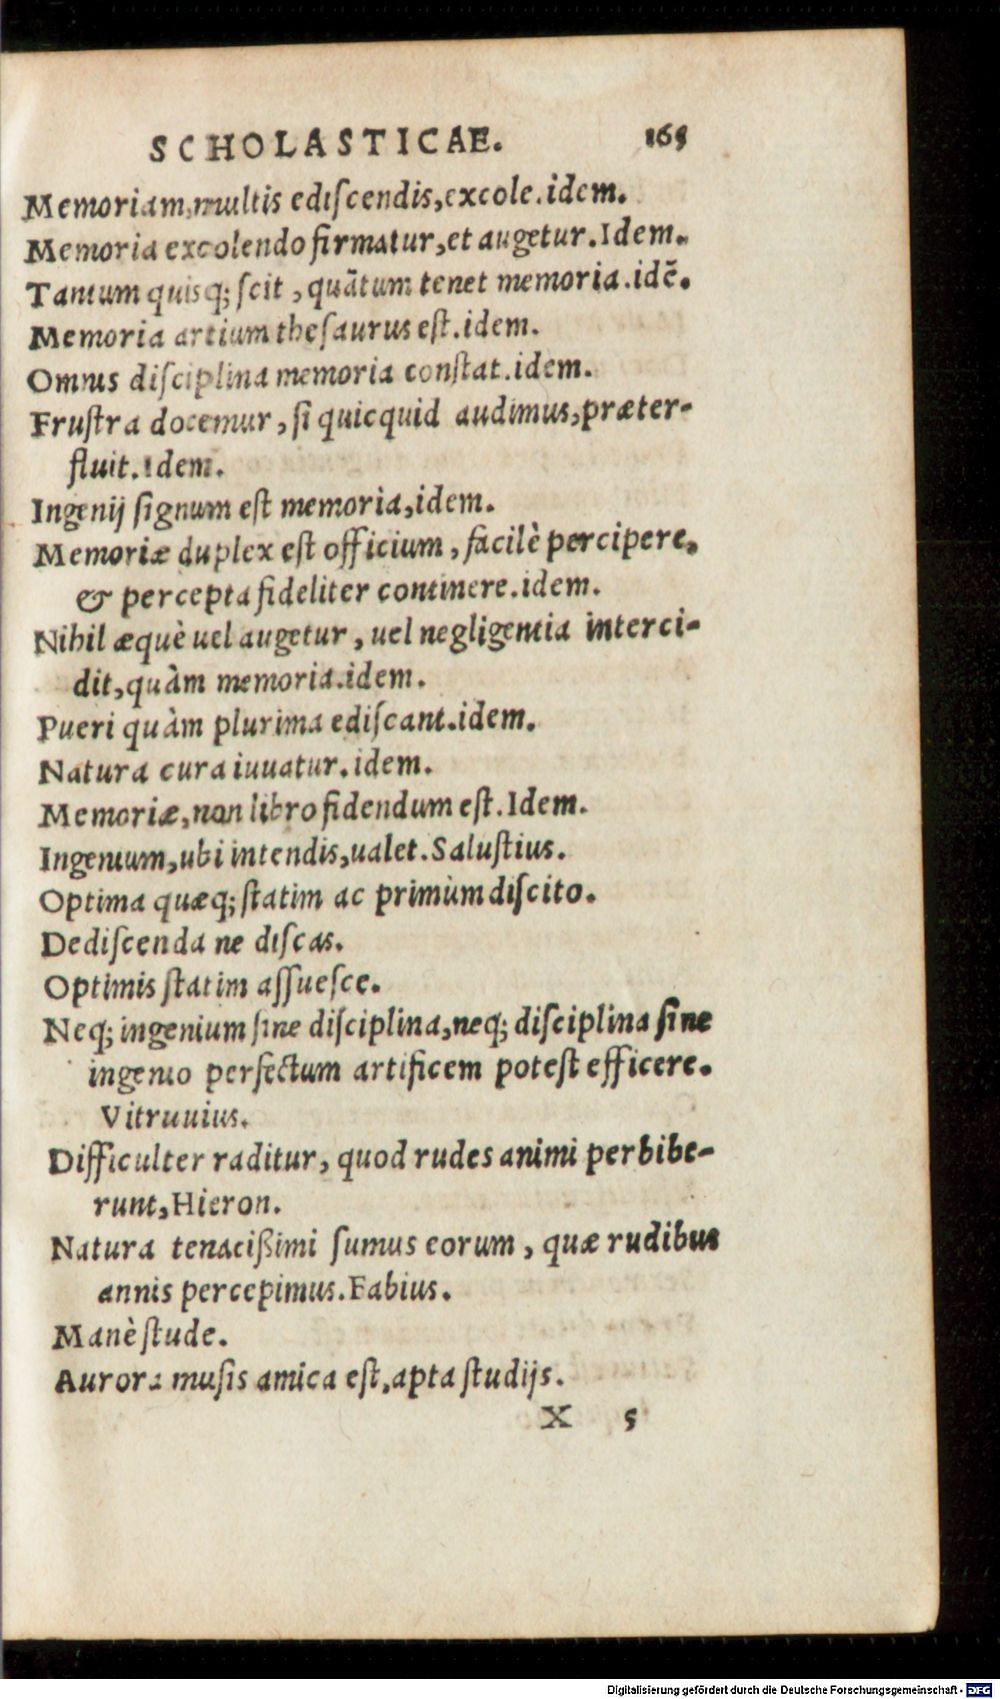 SCHOLASTICAE. 165
Memoriam, multis ediſcendis, excole. idem.
Memoria excolendo firmatur, et augetur. Idem.
Tantum quisq; ſcit, quãtum tenet memoria. idē.
Memoria artium theſaurus eſt. idem.
Omnis diſciplina memoria conſtat. idem.
Fruſtra docemur, ſi quicquid audimus, præter-
fluit. Idem.
Ingenij ſignum eſt memoria, idem.
Memoriæ duplex eſt officium, facilè percipere,
& percepta fideliter continere. idem.
Nihil æquè uel augetur, uel negligentia interci-
dit, quàm memoria. idem.
Pueri quàm plurima ediſcant. idem.
Natura cura iuuatur. idem.
Memoriæ, non libro fidendum eſt. Idem.
Ingenium, ubi intendis, ualet. Saluſtius.
Optima quæq; ſtatim ac primùm diſcito.
Dediſcenda ne diſcas.
Optimis ſtatim aſſueſce.
Neq; ingenium ſine diſciplina, neq; diſciplina ſine
ingenio perfectum artificem poteſt efficere.
Vitruuius.
Difficulter raditur, quod rudes animi perbibe-
runt, Hieron.
Natura tenacißimi ſumus eorum, quæ rudibus
annis percepimus. Fabius.
Manè ſtude.
Aurora muſis amica eſt, apta ſtudijs.
X 5
Digitalisierung gefördert durch die Deutsche Forschungsgemeinschaft - DFG